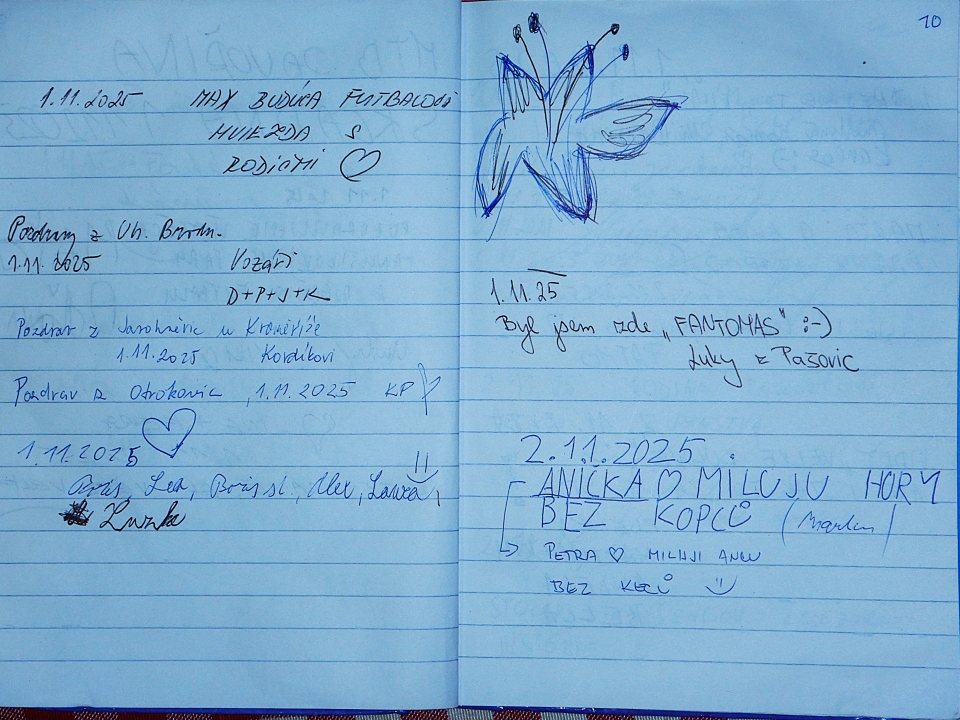 1.11.2025 MAX BUDÚCA FUTBALOVÁ
HVIEZDA S
RODIČMI ♡
Pozdrav z Uh. Brodu.
1.11.2025 Vozáři
D+P+J+K
Pozdrav z Jarohněvic u Kroměříže
1.11.2025 Kordíkovi
Pozdrav z Otrokovic, 1.11.2025 KP
1.11.2025
Boris, Lea, Boris st., Alex, Laura,
Zuzka
10
1.11.25
Byl jsem zde „FANTOMAS" :-)
Luky z Pašovic
2.11.2025
ANIČKA ♡ MILUJU HORY
BEZ KOPCŮ (Martin)
PETRA ♡ MILUJI ANČU
BEZ KECŮ